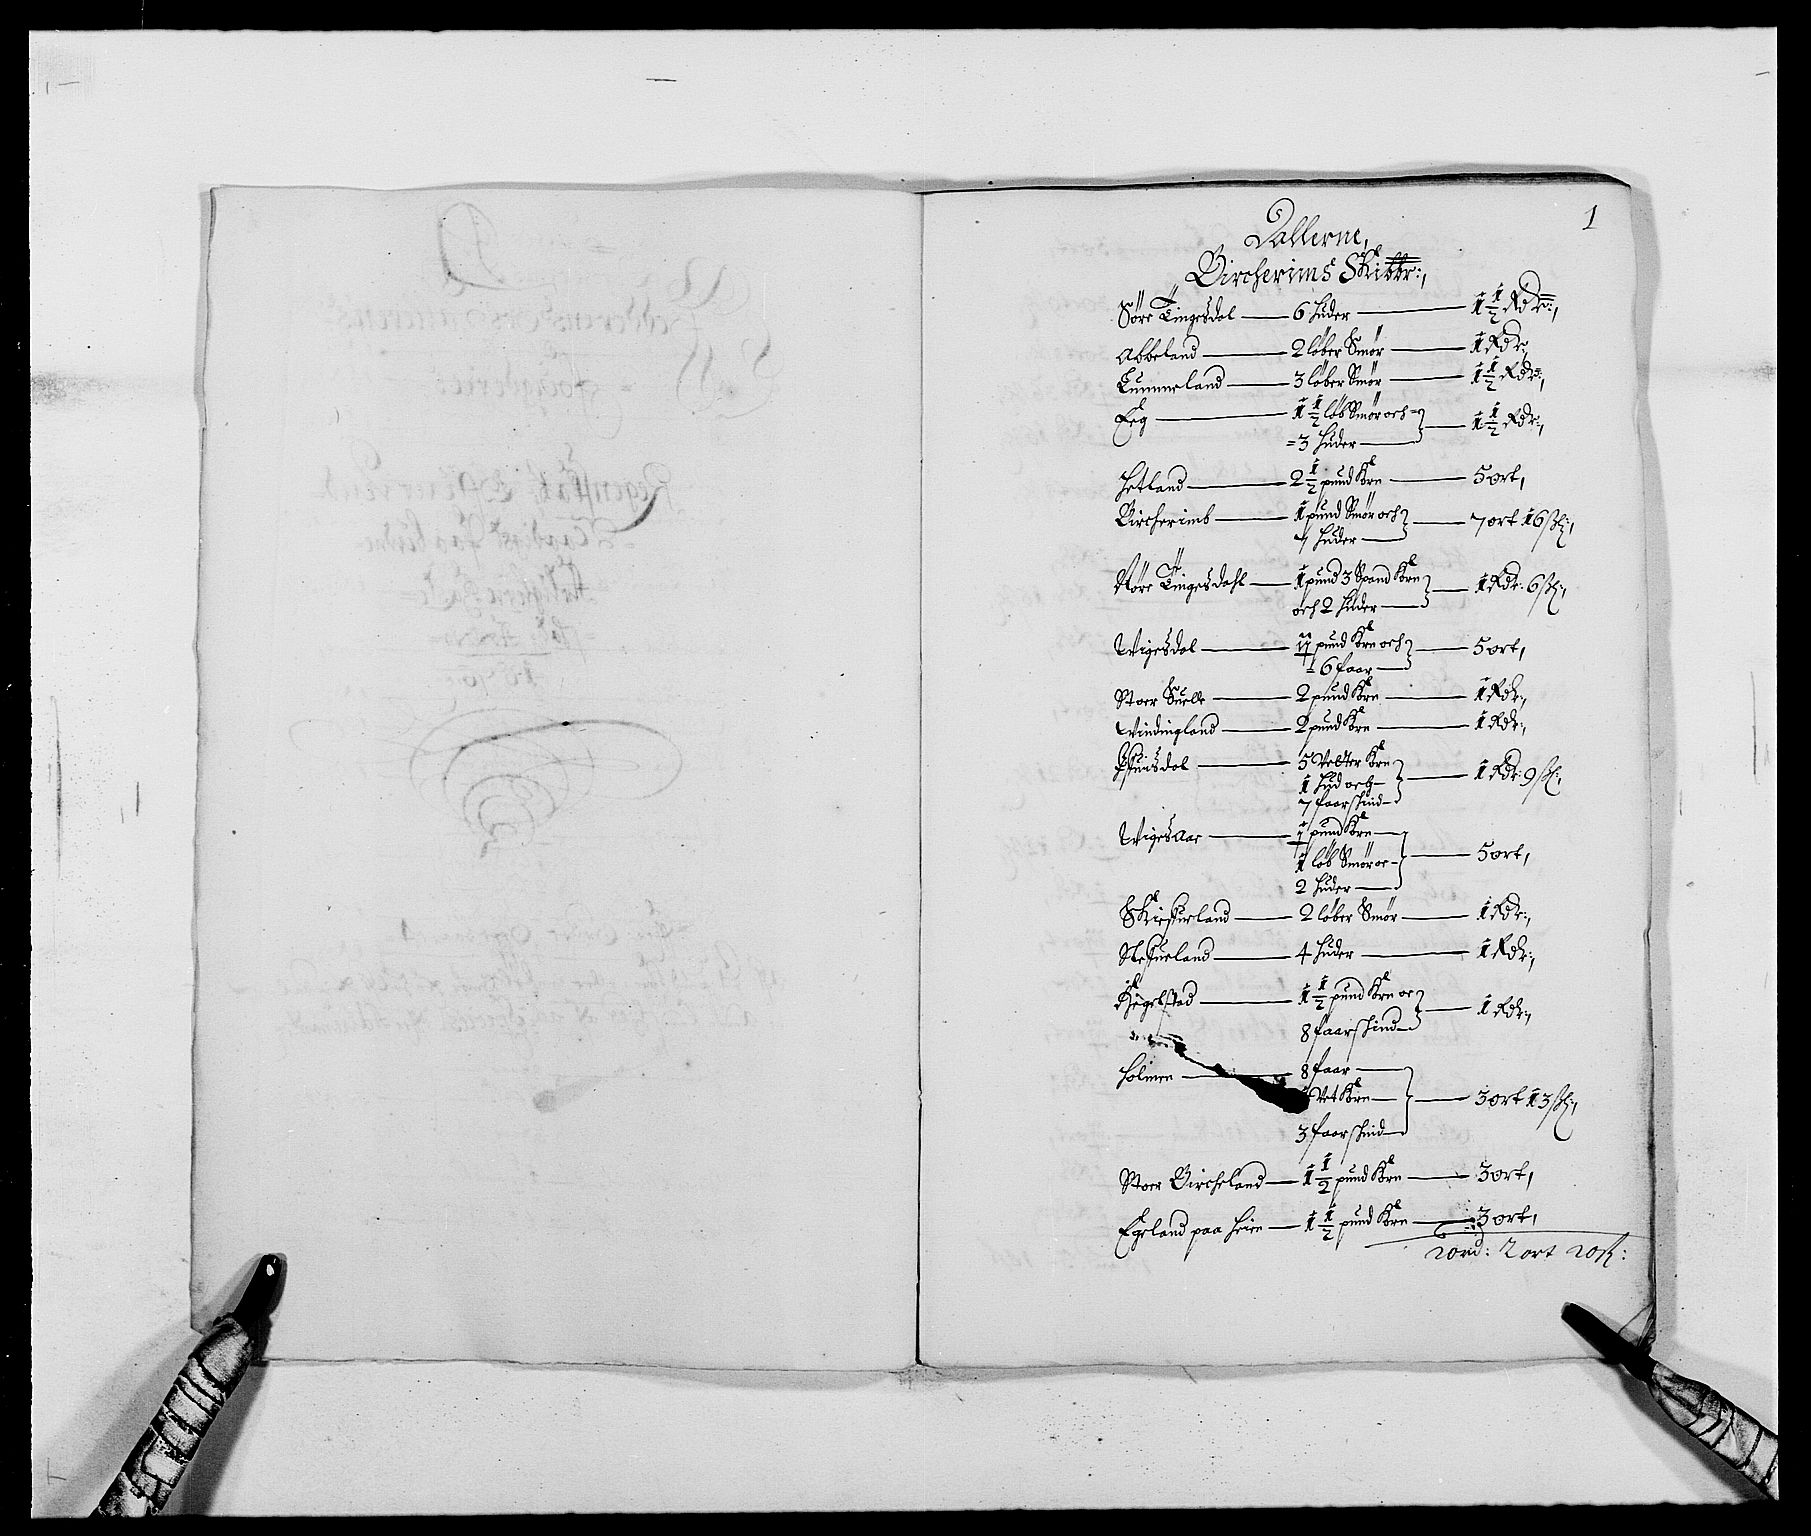 1
Dallerne,
Bircherims Skibbr:,
Søre Tingesdal — 6 huder — 1 1/2 Rdr:,
Abbeland — 2 løber Smør — 1 Rdr:,
Lummeland — 3 løber Smør — 1 1/2 Rdr:,
Eeg — 1 1/2 løb Smør och =
= 3 huder — 1 1/2 Rdr:,
Hetland — 2 1/2 pund Korn — 5 ort,
Bircherimb — 1 pund Smør och
7 huder — 7 ort 16 sk:,
Nøre Tingesdahl — 1 pund 3 Spand Korn
och 2 huder — 1 Rdr: 6 sk:,
Wigesdal — pund Korn och
= 6 faar — 5 ort,
Stoer Svelle — 2 pund Korn — 1 Rdr:,
Windingland — 2 pund Korn — 1 Rdr:,
5 Vetter Korn
1 hud och
7 faarskind — 1 Rdr: 9 sk:,
Wigesaae — pund Korn
1 løb Smør oc
2 huder — 5 ort,
Skiefueland — 2 løber Smør — 1 Rdr:,
Stefueland — 4 huder — 1 Rdr:,
Kegelstad — 1 1/2 pund Korn oc
8 faarskind — 1 Rdr:,
Holmen — 8 faar
Vet Korn
3 faarskind — 3 ort 13 sk:,
Stoer Bircheland — 1 1/2 pund Korn — 3 ort,
Egeland paa Heien — 1 1/2 pund Korn — 3 ort,
20 rd: 2 ort 20 ß: